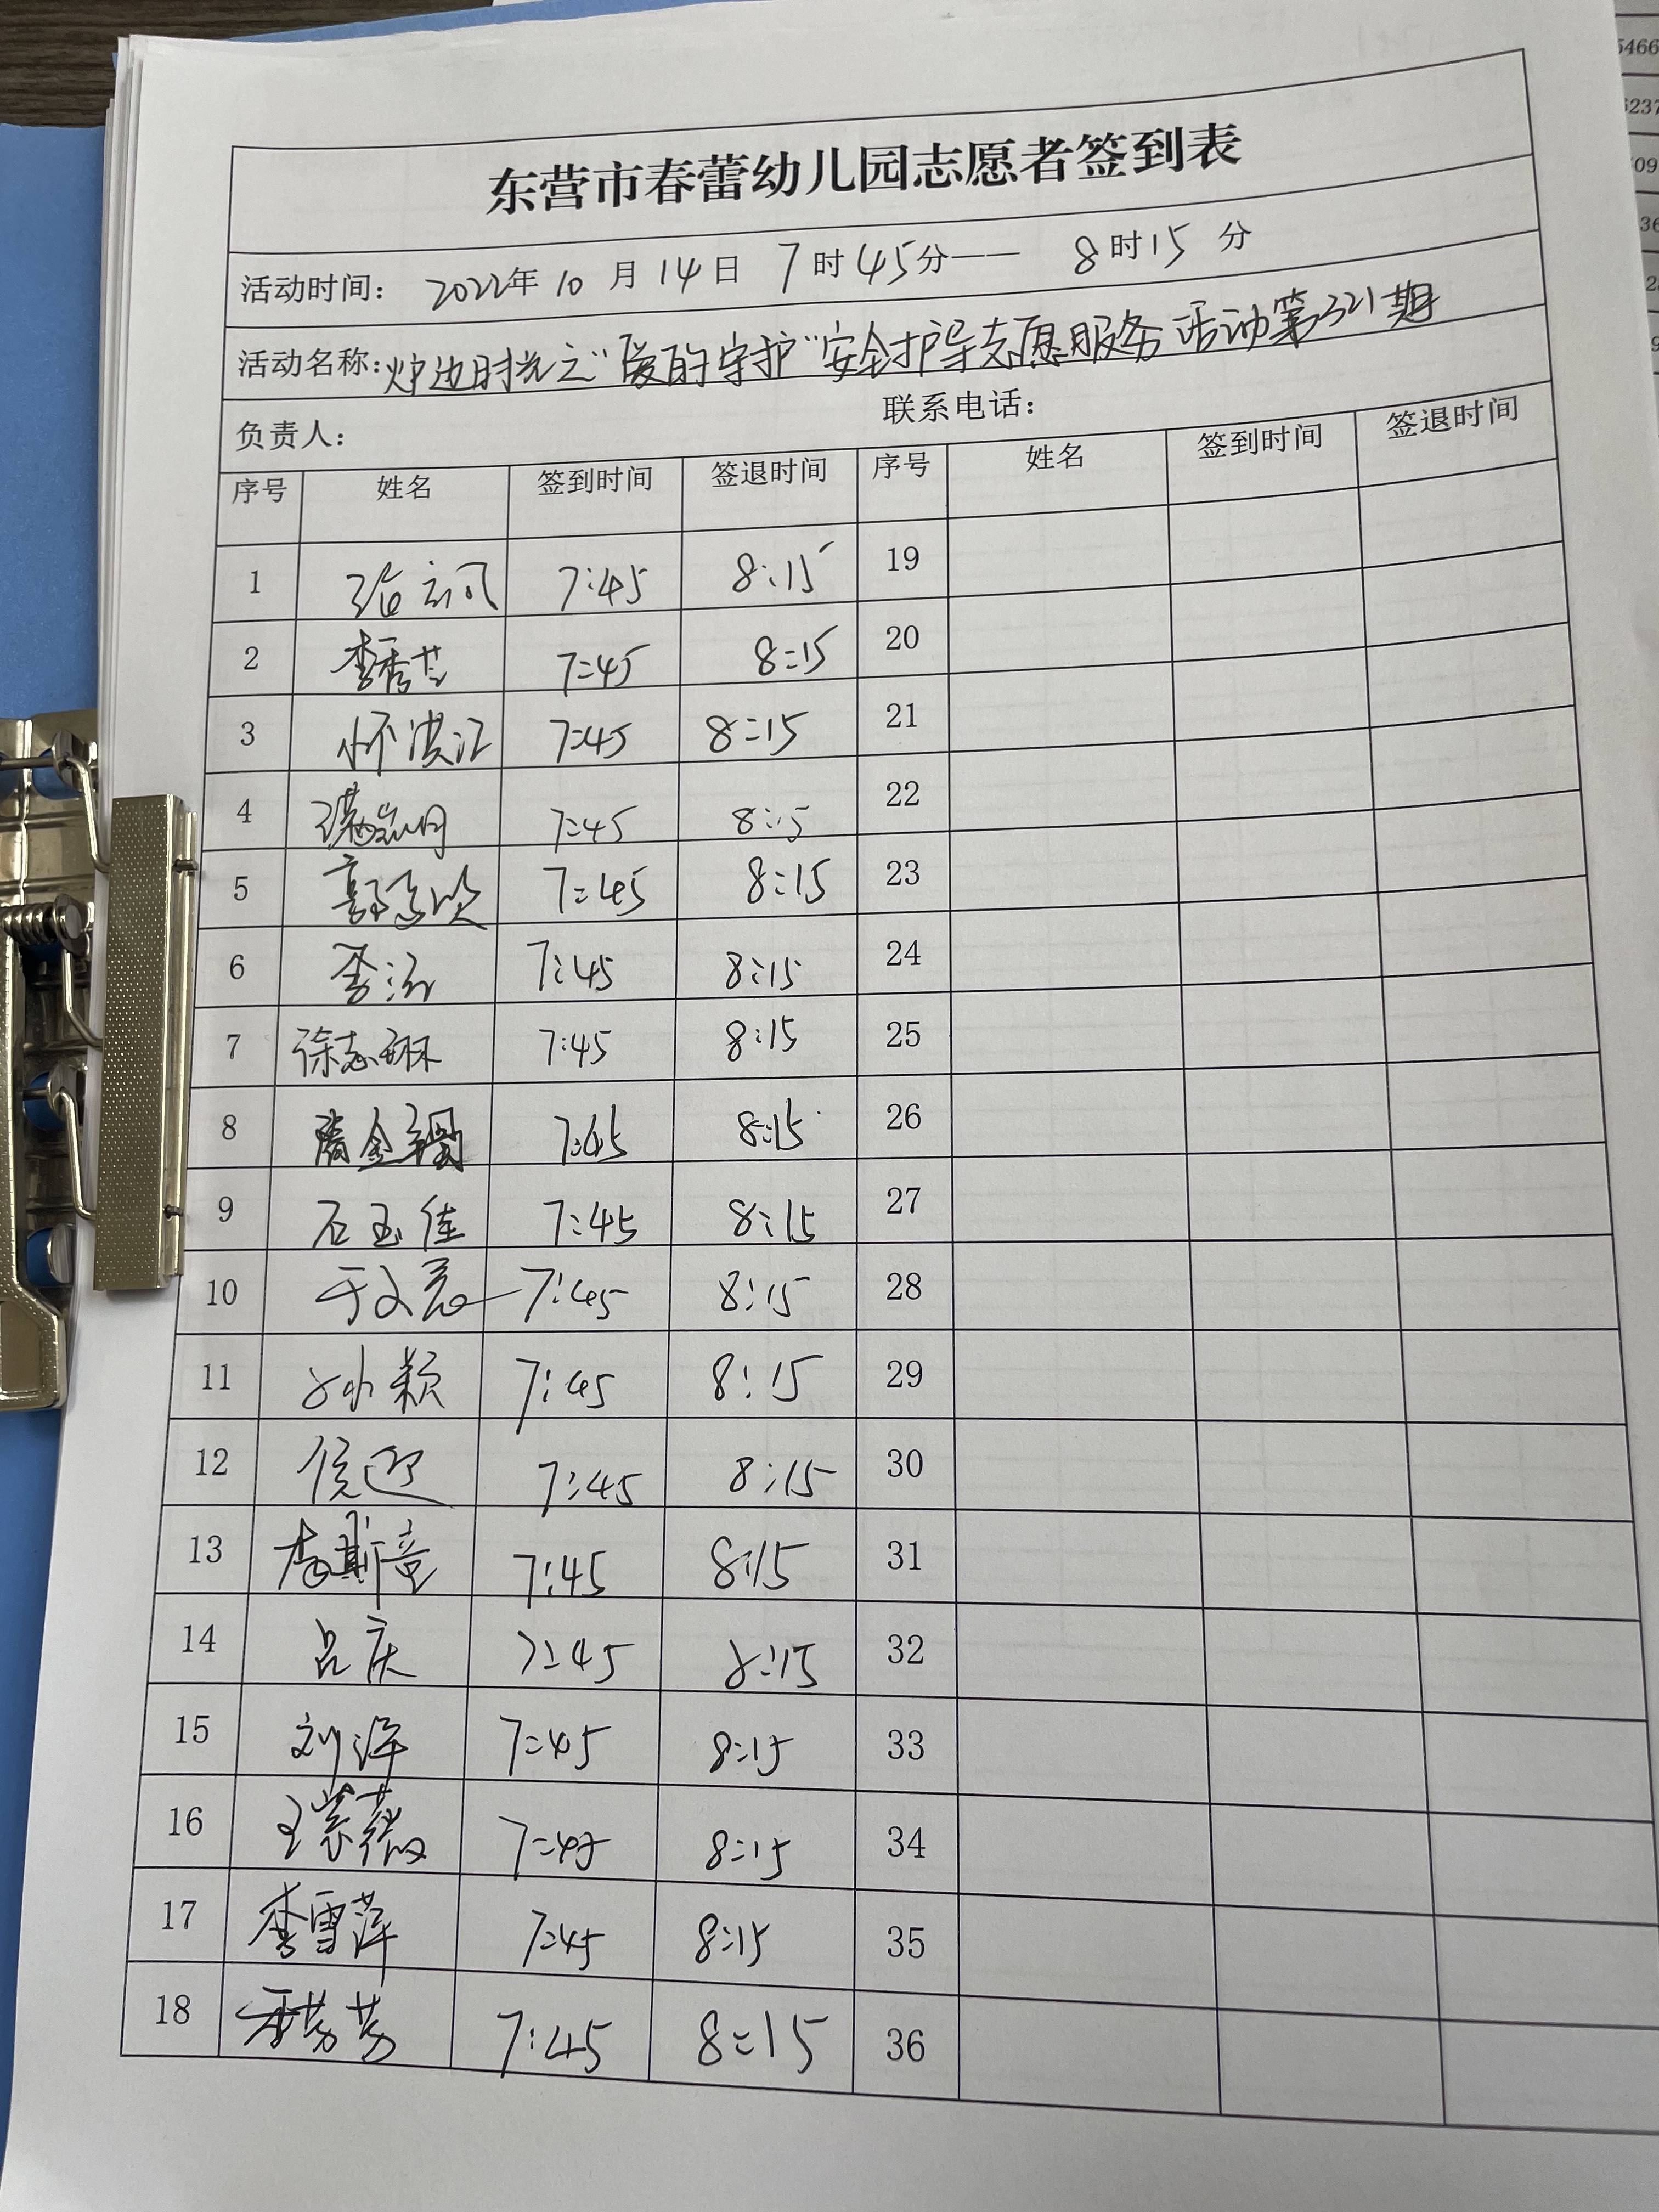 东营市春蕾幼儿园志愿者签到表
活动时间： 2022年 10 月 14 日 7 时 45分—— 8 时 15 分
活动名称：炉边时光之“爱的守护”安全护导志愿服务活动第321期
负责人： 联系电话：
序号 姓名 签到时间 签退时间 序号 姓名 签到时间 签退时间
1 7:45 8:15 19
2 李秀芝 7:45 8:15 20
3 怀洪江 7:45 8:15 21
4 7:45 8:15 22
5 郭 7:45 8:15 23
6 李 7:45 8:15 24
7 徐志琳 7:45 8:15 25
8 隋金 7:45 8:15 26
9 石玉佳 7:45 8:15 27
10 于文 7:45 8:15 28
11 孙颖 7:45 8:15 29
12 侯迎 7:45 8:15 30
13 李斯童 7:45 8:15 31
14 吕庆 7:45 8:15 32
15 刘洋 7:45 8:15 33
16 王紫薇 7:45 8:15 34
17 李雪萍 7:45 8:15 35
18 芳芳 7:45 8:15 36
5466
6237